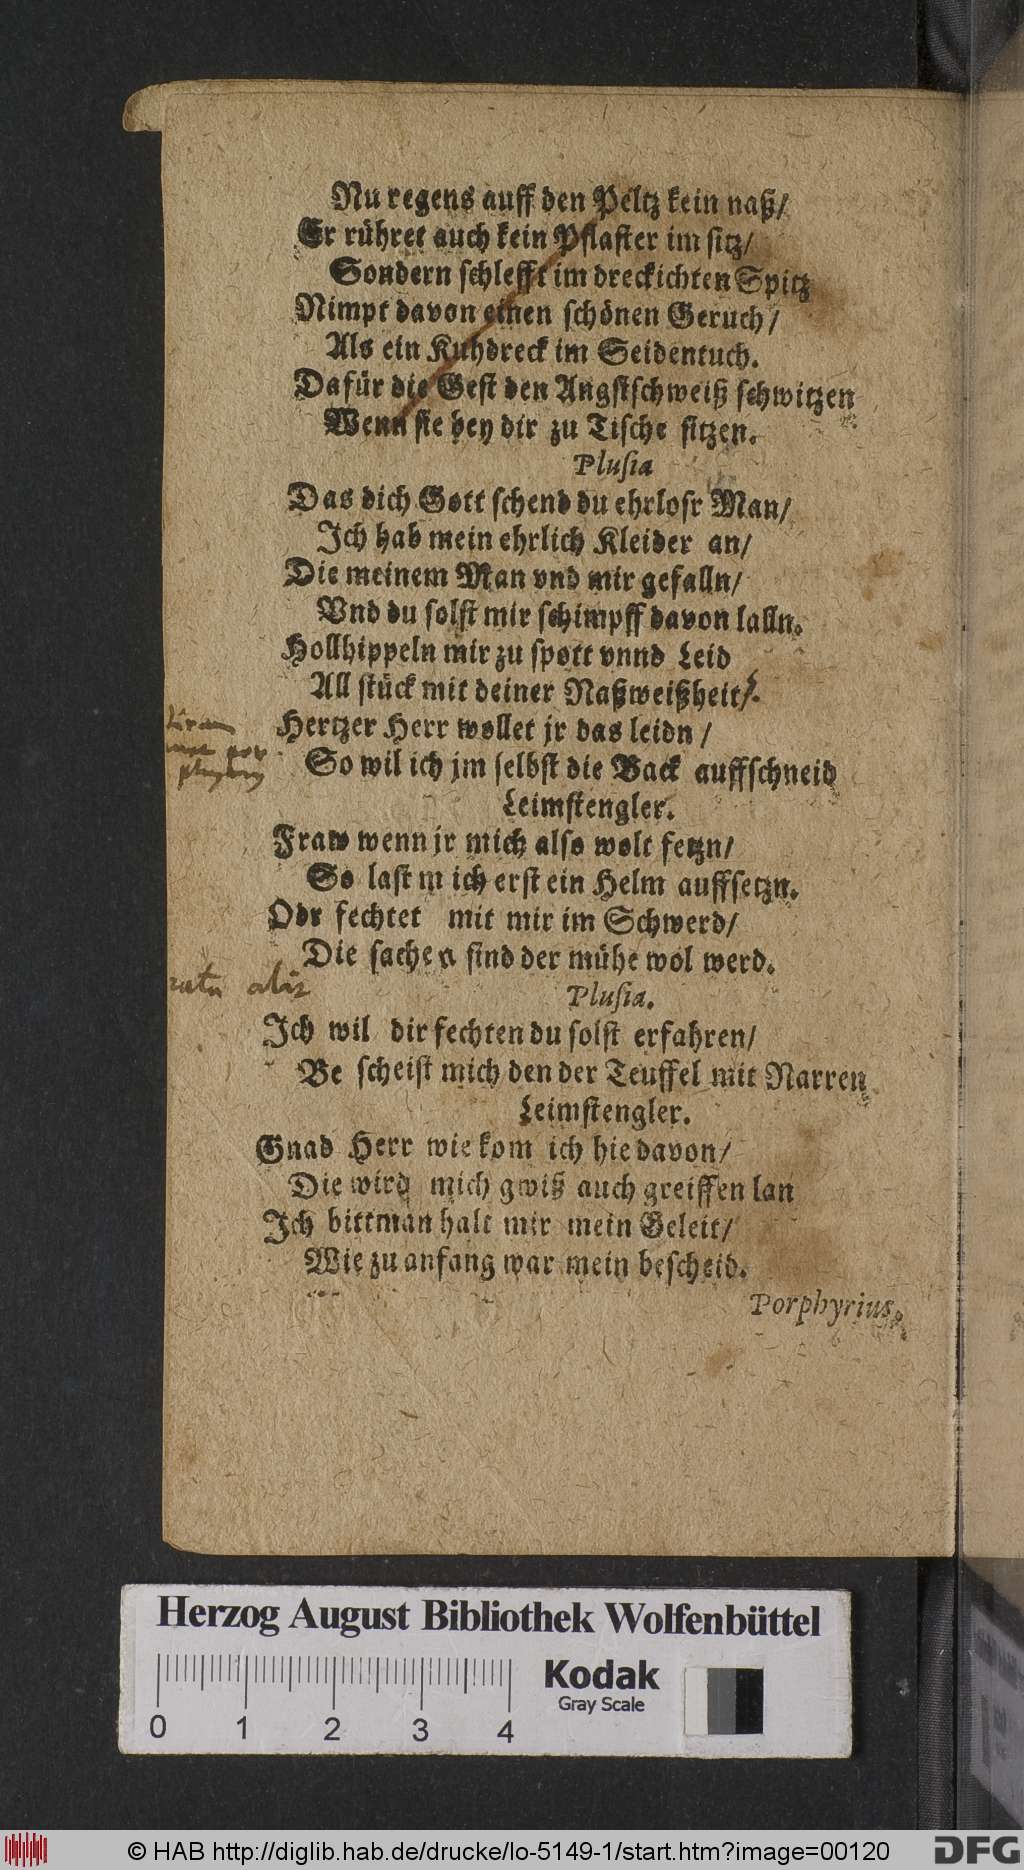 Nu regens auff den Peltz kein naß/
Er rühret auch kein Pflaster im sitz/
Sondern schlefft im dreckichten Spitz
Nimpt davon einen schönen Geruch/
Als ein Kuhdreck im Seidentuch.
Dafür die Gest den Angstschweiß schwitzen
Wenn sie bey dir zu Tische sitzen.
Plusia
Das dich Gott schend du ehrlosr Man/
Ich hab mein ehrlich Kleider an/
Die meinem Man vnd mir gefalln/
Vnd du solst mir schimpff davon lalln.
Hollhippeln mir zu spott vnnd Leid
All stück mit deiner Naßweißheit/.
Hertzer Herr wollet jr das leidn /
So wil ich jm selbst die Back auffschneid
Leimstengler.
Fraw wenn jr mich also wolt fetzn/
So last m ich erst ein Helm auffsetzn.
Odr fechtet mit mir im Schwerd/
Die sachen sind der mühe wol werd.
Plusia.
Ich wil dir fechten du solst erfahren/
Be scheist mich den der Teuffel mit Narren
Leimstengler.
Gnad Herr wie kom ich hie davon/
Die wird mich gwiß auch greiffen lan
Ich bitt man halt mir mein Geleit/
Wie zu anfang war mein bescheid.
Porphyrius.
Herzog August Bibliothek Wolfenbüttel
Kodak
Gray Scale
0 1 2 3 4
© HAB http://diglib.hab.de/drucke/lo-5149-1/start.htm?image=00120
DFG